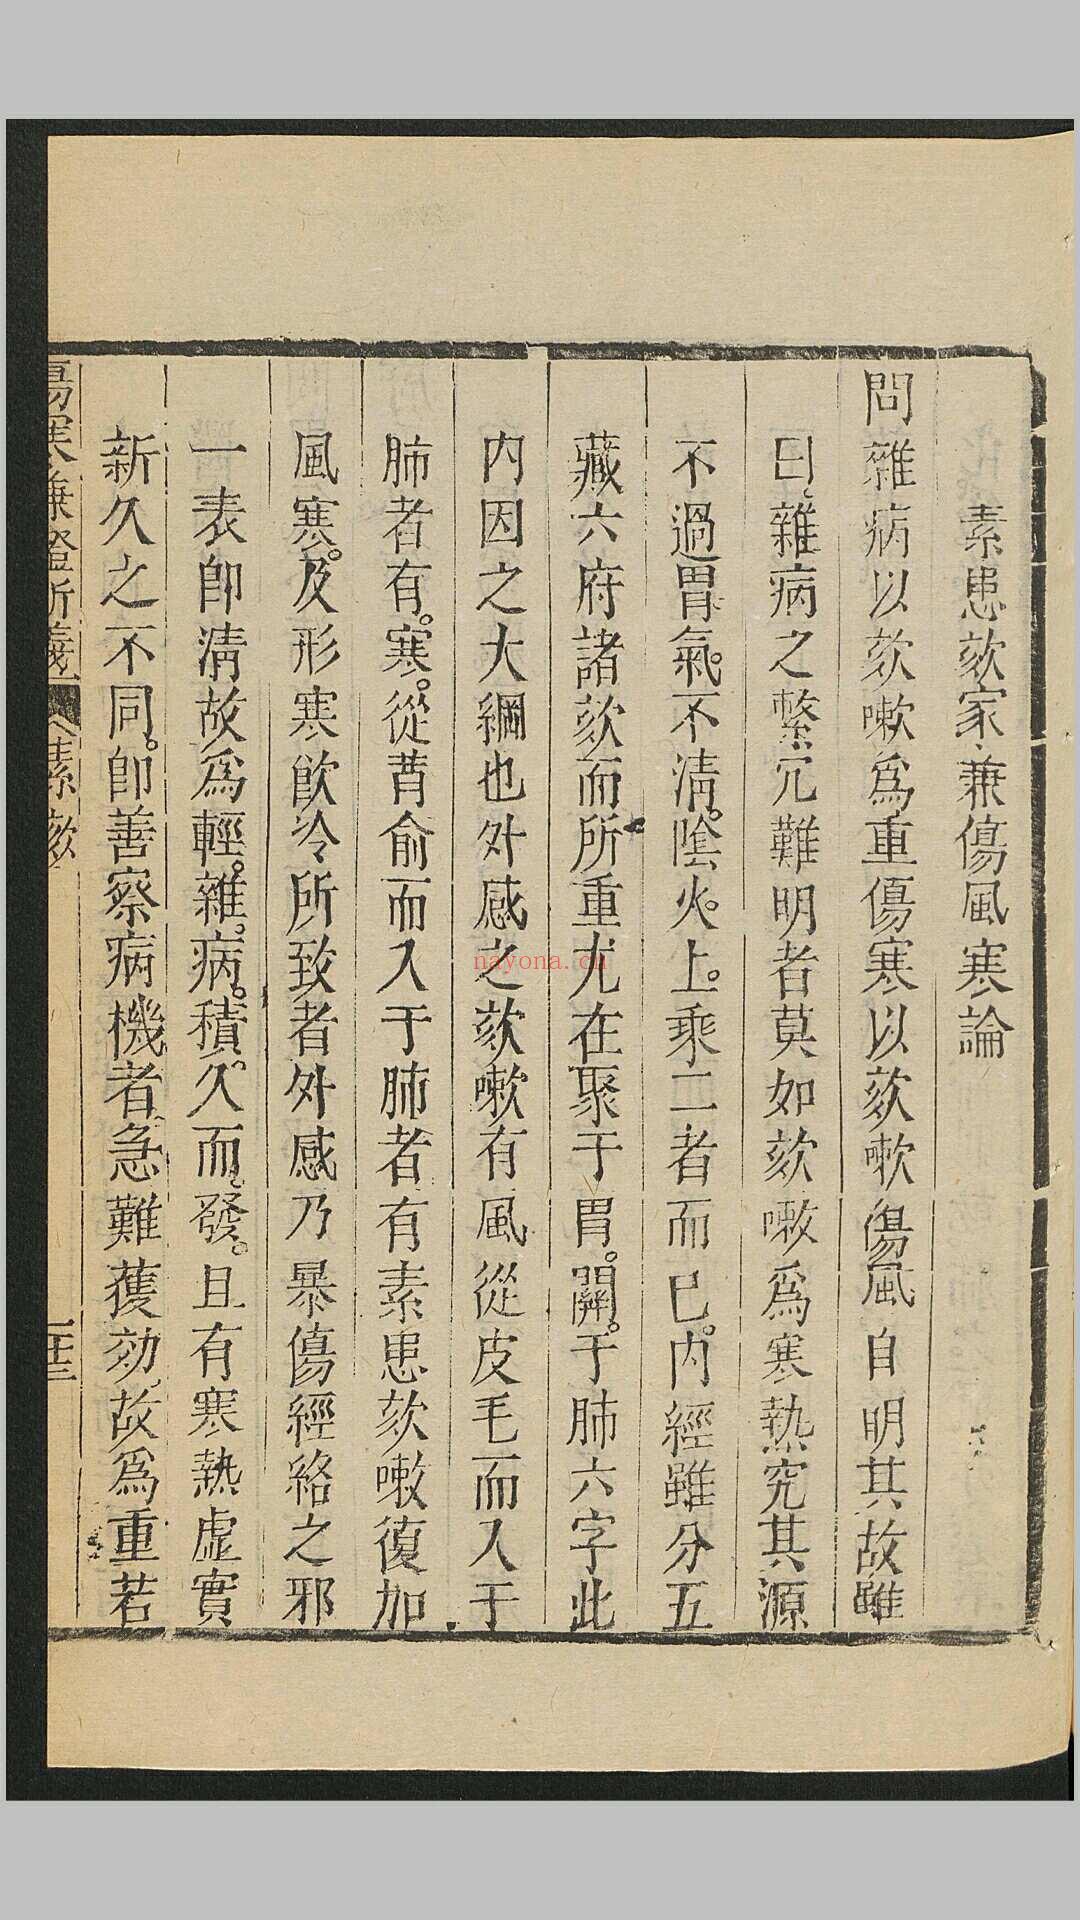 素患欬家兼傷風寒論
問雜病以欬嗽爲重傷寒以欬嗽傷風自明其故雖
曰雜病之繫冗難明者莫如欬嗽爲寒熱究其源
不過胃氣不淸陰火上乘二者而已內經雖分五
藏六府諸欬而所重尤在聚于胃關于肺六字此
內因之大綱也外感之欬嗽有風從皮毛而入于
肺者有寒從背俞而入于肺者有素患欬嗽復加
風寒及形寒飲冷所致者外感乃暴傷經絡之邪
一表卽淸故爲輕雜病積久而發且有寒熱虛實
新久之不同卽善察病機者急難獲効故爲重若
傷寒兼證析義 素欬 二十三
nayona.cn